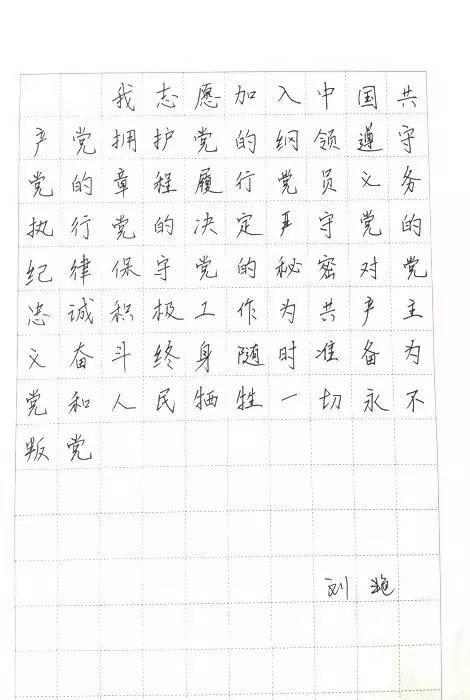 我志愿加入中国共
产党拥护党的纲领遵守
党的章程履行党员义务
执行党的决定严守党的
纪律保守党的秘密对党
忠诚积极工作为共产主
义奋斗终身随时准备为
党和人民牺牲一切永不
叛党
刘艳